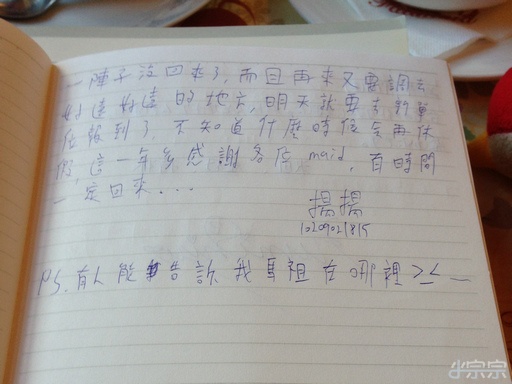 一陣子沒回來了，而且再來又要調去
好遠好遠的地方，明天就要去新單
位報到了，不知道什麼時候會再休
假，這一年多感謝各位maid，有時間
一定回來...
揚揚
1020902 1815
PS.有人能告訴我馬祖在哪裡>_<
小宗宗